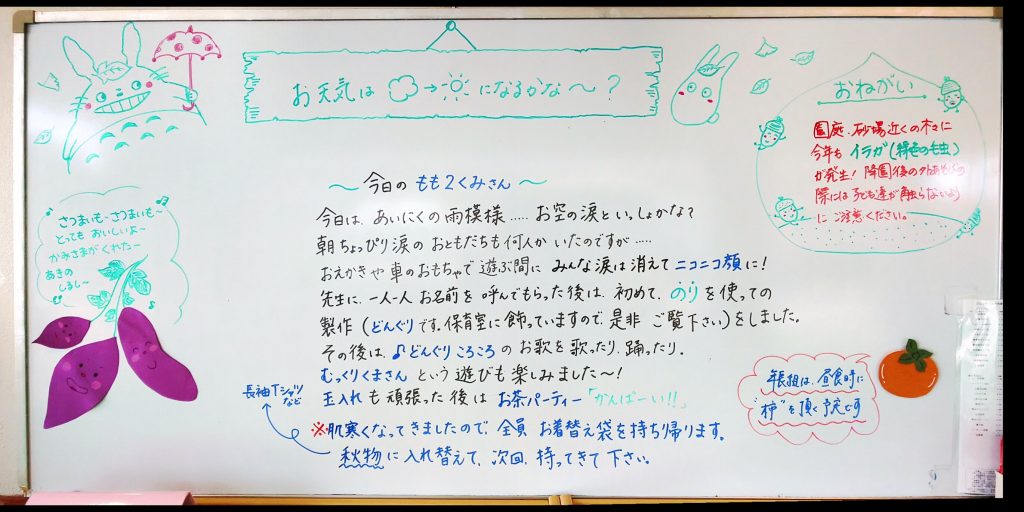 お天気は → になるかな～？
おねがい
園庭、砂場近くの木々に
今年も イラガ(緑色の毛虫)
が発生! 降園後の外あそびの
際には 子ども達が触らないよう
にご注意ください。
～ 今日の もも2くみさん ～
今日は、あいにくの雨模様 ‥‥‥ お空の涙といっしょかな？
朝ちょっぴり涙の おともだちも何人か いたのですが ‥‥‥
おえかきや 車のおもちゃで 遊ぶ間に みんな涙は消えて ニコニコ顔に!
先生に、一人一人 お名前を 呼んでもらった後は、初めて、のり を使っての
製作 (どんぐりです。保育室に飾っていますので、是非 ご覧下さい)をしました。
その後は、♪どんぐりころころ のお歌を歌ったり、踊ったり。
むっくりくまさん という遊びも楽しみました～!
玉入れ も 頑張った 後は お茶パーティー「かんぱーい!!」
長袖Tシャツ
など
※肌寒くなってきましたので、全員 お着替え袋を持ち帰ります。
秋物に入れ替えて、次回、持ってきて下さい。
♪さつまいも～さつまいも～♫
とっても おいしいよ～
かみさまが くれたー
あきの
しるし～
年長組は、昼食時に
"柿"を頂く予定です